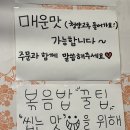 매운맛 (청양고추 들어가요!)
가능합니다~
주문과 함께 말씀해주세요♥
볶음밥 꿀팁
"씹는 맛"을 위해